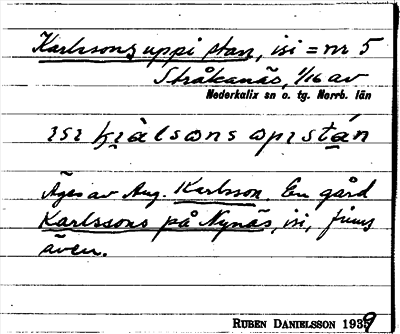 Karlssons uppi stan, isi = nr 5
Stråkanäs, 1/16 av
Nederkalix sn o. tg. Norrb. län
Äges av Aug. Karlsson. En gård
Karlssons på Nynäs, isi, finns
även.
RUBEN DANIELSSON 1939